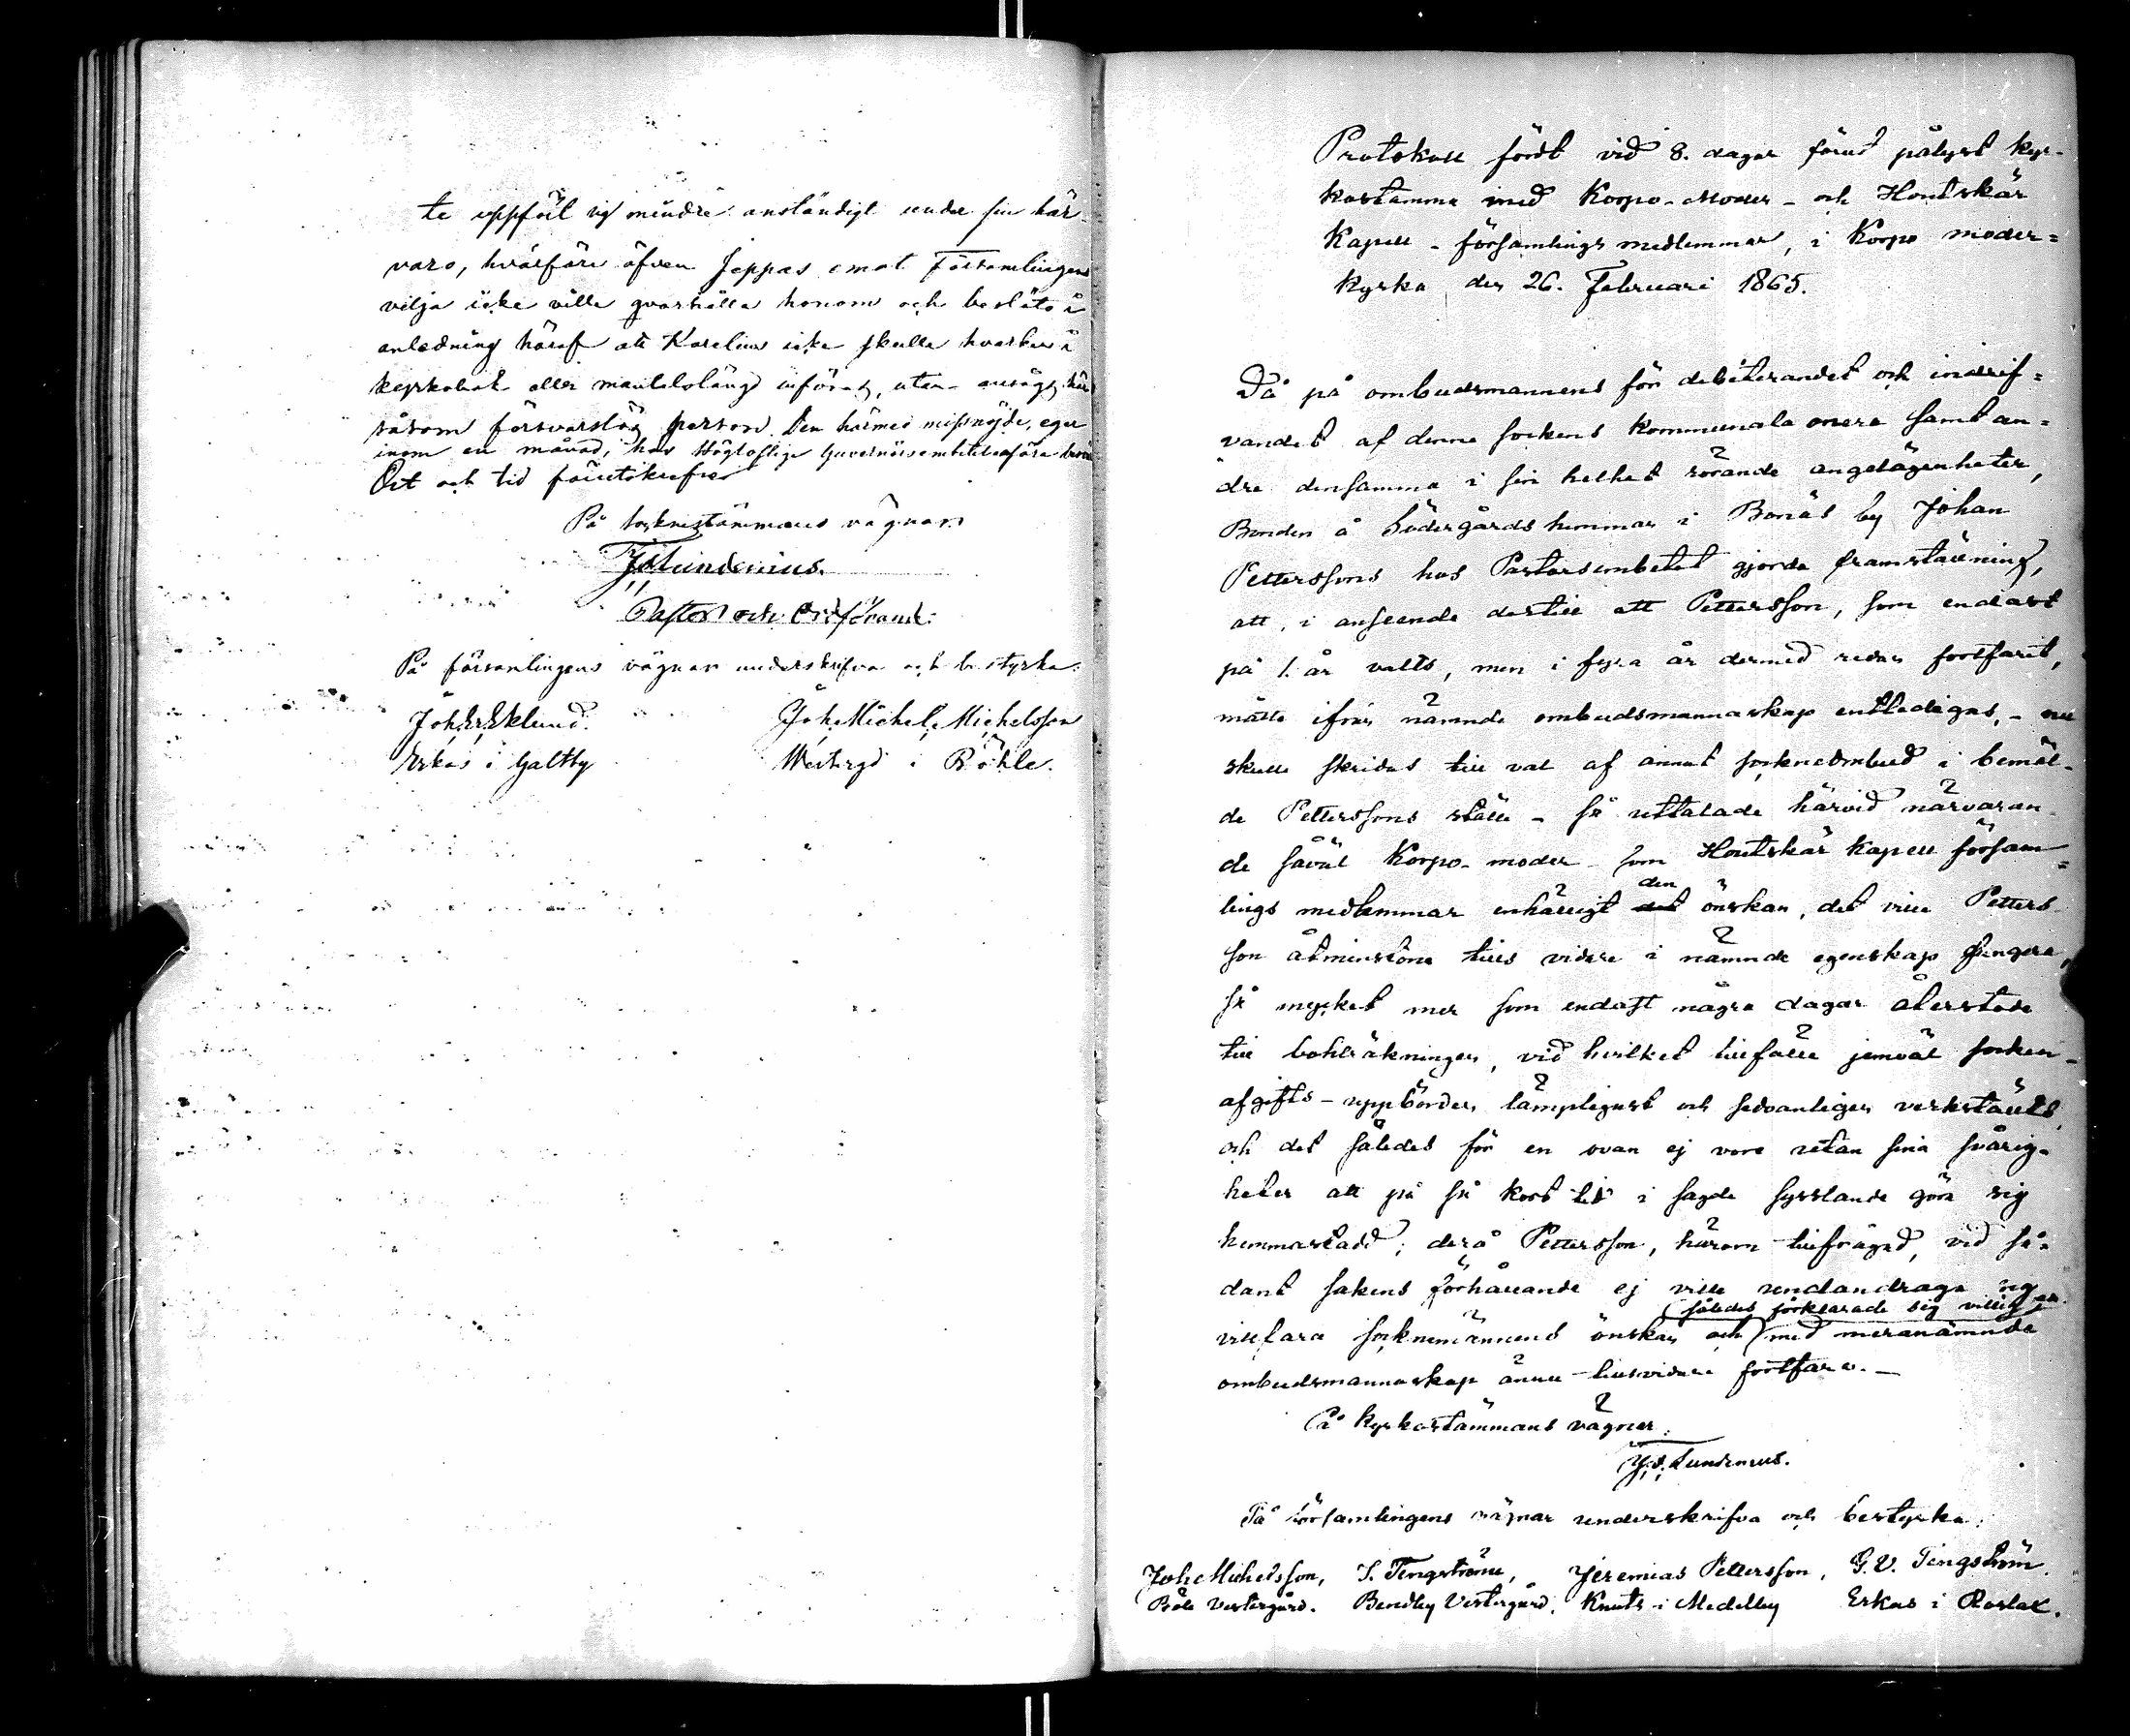 te uppfört sig mindre anständigt under sin här
varo, hvarföre äfven Jeppas emot Församlingens
vilja icke ville qvarhålla honom och beslöts i
anledning häraf att Karelius icke skulle hvarken i
kyrkobok eller mantalslängd införas, utan anses här
såsom försvarslös person. Den härmed missnöjde, eger
inom en månad, hos Högloflige Guvernörsembetet anföra besvär
Ort och tid förutskrefne
På socknestämmans vägnar
J. S. Lundenius.
Pastor och Ordförande.
På församlingens vägnar underskrifva och bestyrka:
Joh. Er. Eklund. Joh. Michels. Michelsson
Erkas i Galtby Westergd i Böhle.
Protokoll fördt vid 8. dagar förut pålyst kyr-
kostämma med Korpo-Moder- och Houtskär
Kapell-församlings medlemmar, i Korpo moder=
kyrka den 26. Februari 1865.
Då på ombudsmannens för debiterandet och indrif=
vandet af denna sockens kommunala onera samt an=
dra densamma i sin helhet rörande angelägenheter,
Bonden å Södergårds hemman i Bonäs by Johan
Petterssons hos Pastorsembetet gjorda framställning,
att, i anseende dertill att Pettersson, som endast
på 1. år valts, men i fyra år dermed redan fortfarit,
måtte ifrån nämnde ombudsmannaskap entledigas, - nu
skulle skridas till val af annat sockneombud i bemäl-
de Petterssons ställe - så uttalade härvid närvaran-
de såväl Korpo-moder- som Houtskär kapell försam=
lings medlemmar enhälligt det den önskan, det ville Petters-
son åtminstone tills vidare i nämnde egenskap fungera,
så mycket mer som endast några dagar återstode
till bohlräkningen, vid hvilket tillfälle jemväl socken-
afgifts-uppbörden lämpligast och sedvanligen verkställts,
och det således för en ovan ej vore utan sina svårig-
heter att på så kort tid i sagde sysslande göra sig
hemmastadd; derå Pettersson, härom tillfrågad, vid så-
dant sakens förhållande ej ville undandraga sig
således förklarade sig villig att
villfara socknemännens önskan och med meranämnda
ombudsmannaskap ännu tillsvidare fortfara. -
På kyrkostämmans vägnar:
J. S. Lundenius.
På församlingens vägnar underskrifva och bestyrka:
Joh. Michelsson, S. Tengström, Jeremias Pettersson, G. V. Tengström.
Böle Vestergård. Bendby Vestergård. Knuts i Medelby Erkas i Roslax.